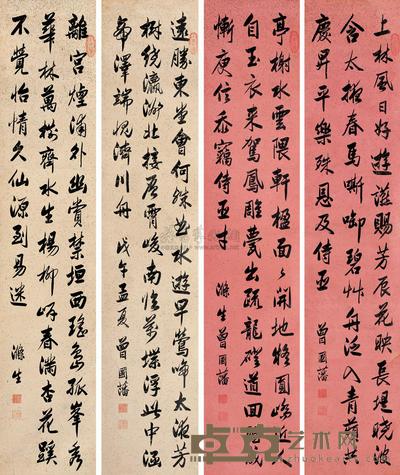 上林風日好遊讌賜芳辰花映長堤曉波
含太液春馬嘶啣碧草舟泛入青蘋共
慶昇平樂殊恩及侍臣 曾國藩
亭榭水雲隈軒楹面面開地將圓嶠近人
自玉衣來駕鳳雕甍出疏龍磴道回 成
慚庾信忝竊侍臣才 滌生曾國藩
遠勝東堂會何殊曲水遊早鶯啼太液芳
樹繞瀛洲北接層霄峻南臨萬堞浮此中涵
帝澤端愧濟川舟 戊午孟夏曾國藩
離宮煙浦外幽賞禁垣西瑤島孤峯秀
華林萬樹齊水生楊柳岸春滿杏花蹊
不覺怡情久仙源到易迷 滌生
卓克艺术网